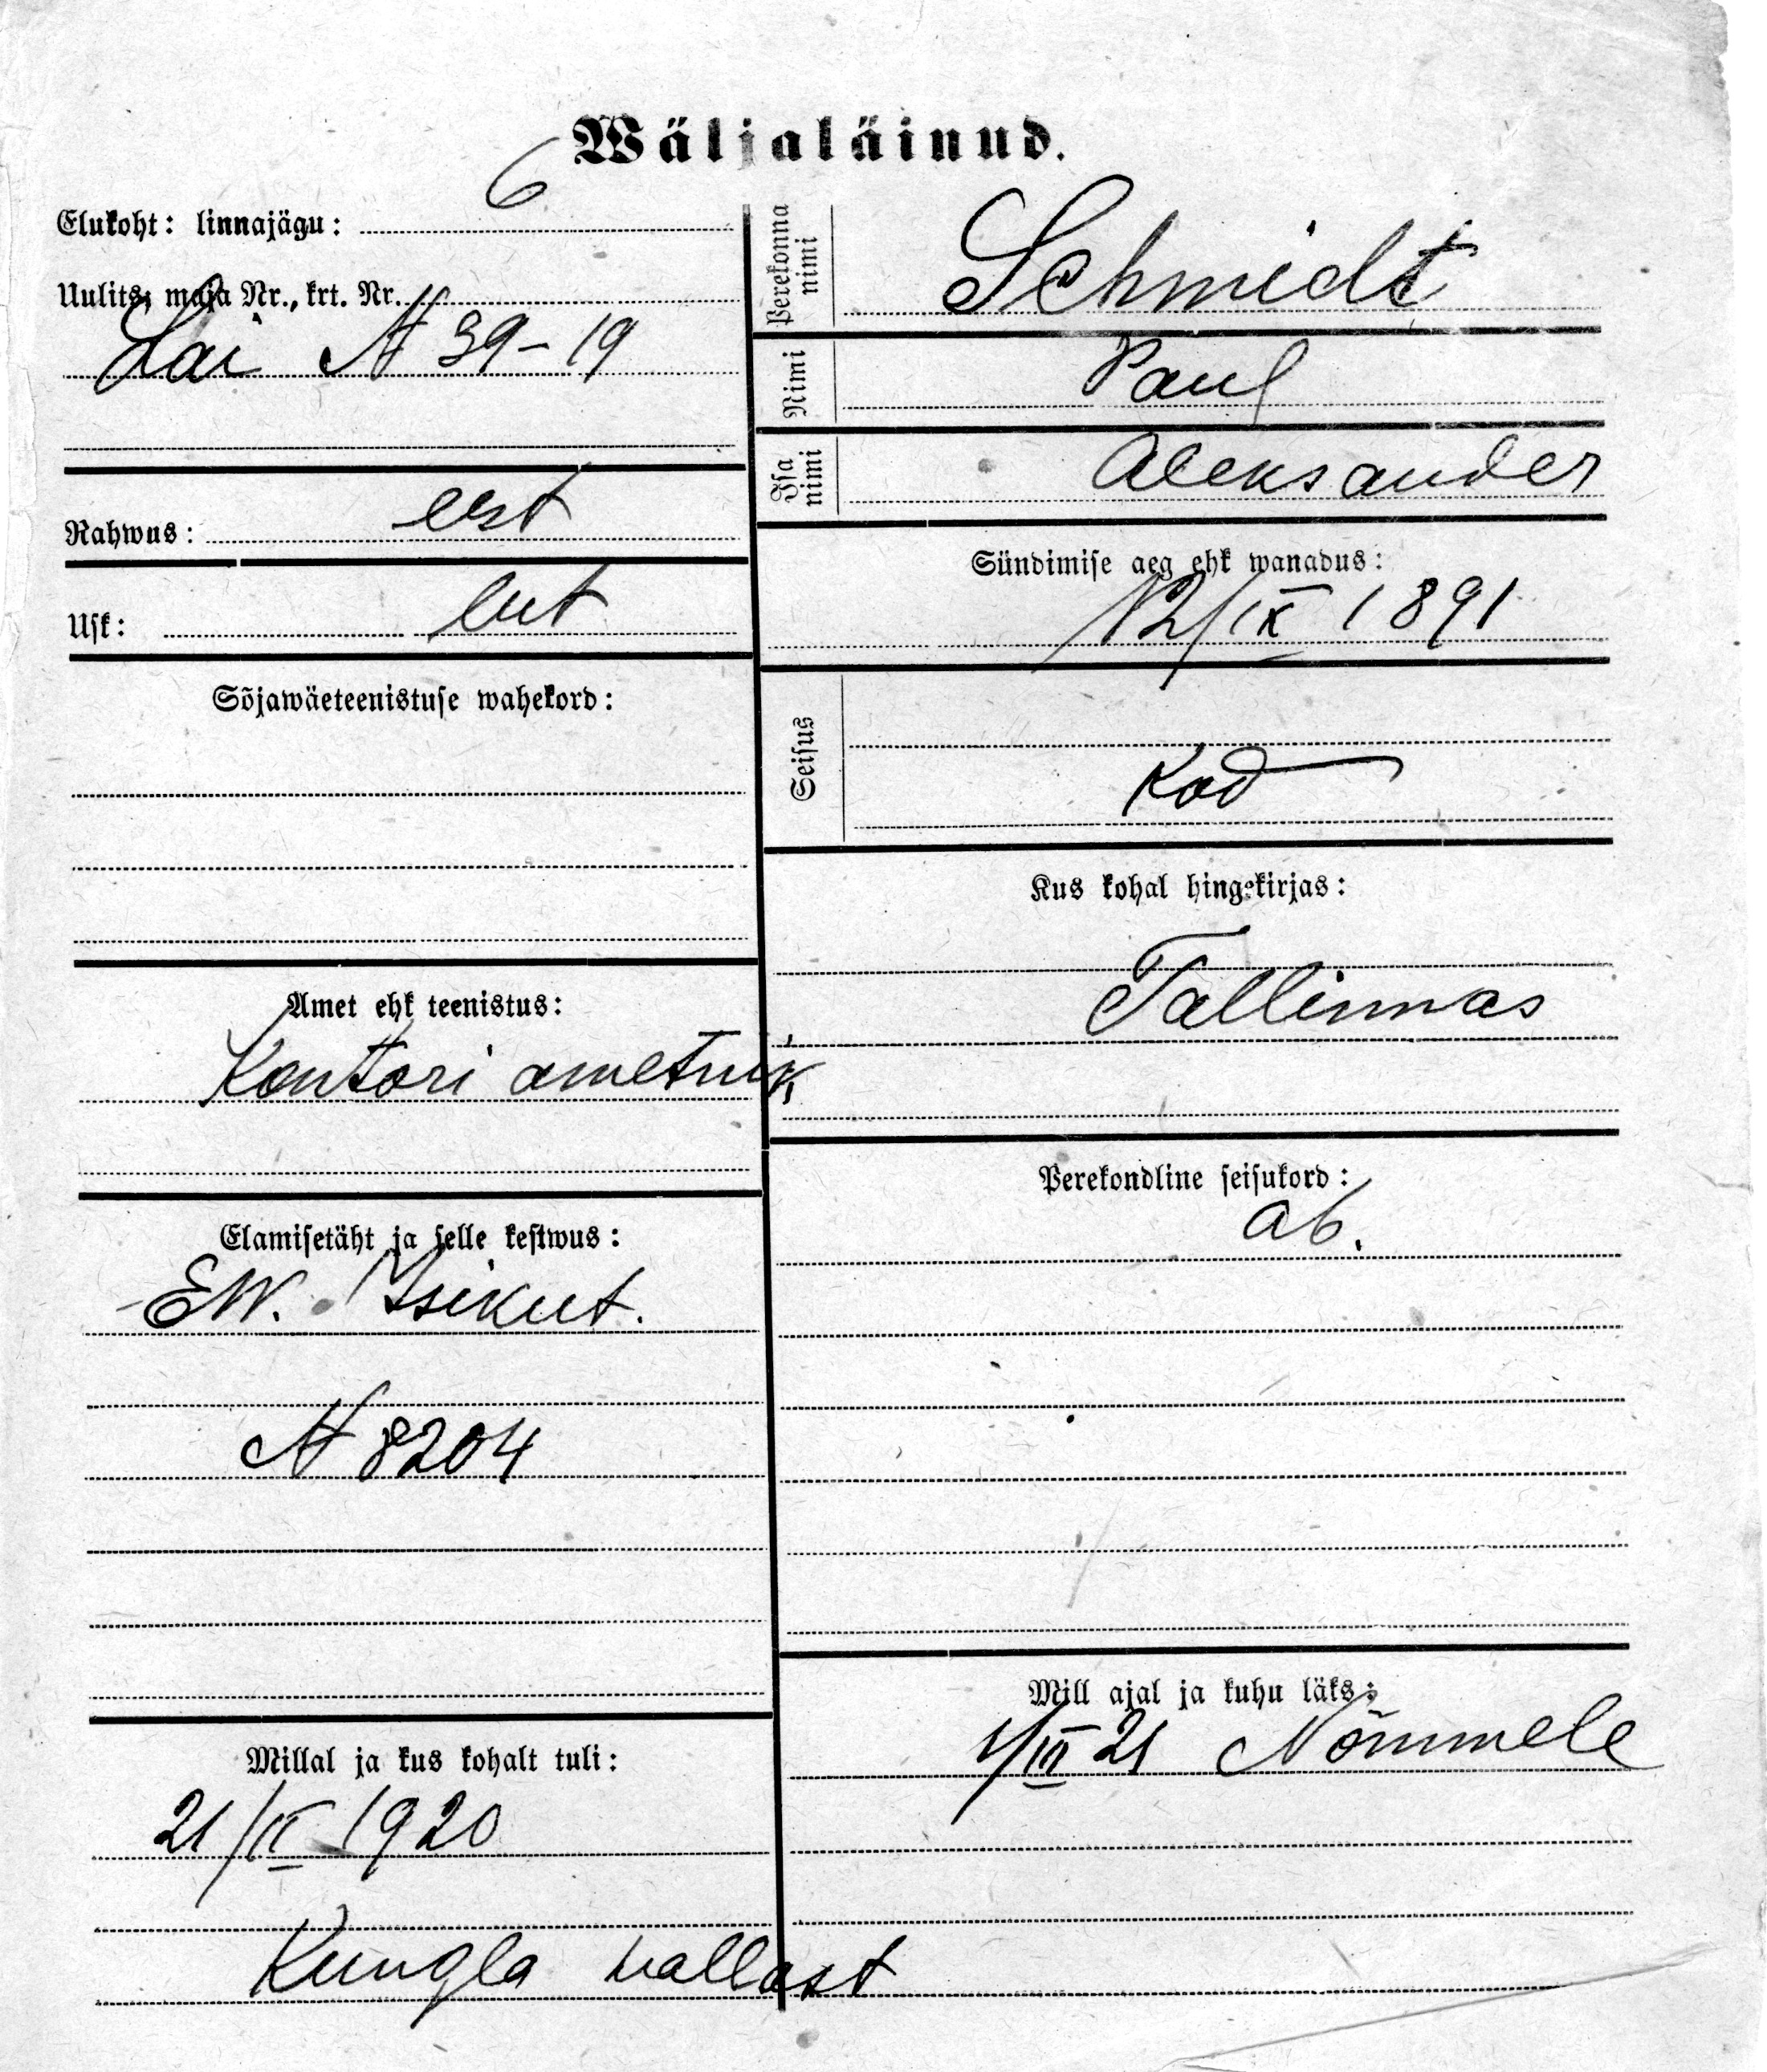 Wäljaläinud.
Elukoht: linnajägu: 6
Uulits, maja Nr., krt. Nr.
Lai № 39-19
Rahwus: est
Usk: lut
Sõjawäeteenistuse wahekord:
Amet ehk teenistus:
Kontori ametnik
Elamisetäht ja selle kestwus:
EW. Isikut.
№ 8204
Millal ja kus kohalt tuli:
21/II 1920
Kungla wallast
Perekonna nimi Schmidt
Nimi Paul
Isa nimi Aleksander
Sündimise aeg ehk wanadus:
12/IX 1891
Seisus
Kod
Kus kohal hingekirjas:
Tallinnas
Perekondline seisukord:
ab.
Mill ajal ja kuhu läks:
1/III 21 Nõmmele